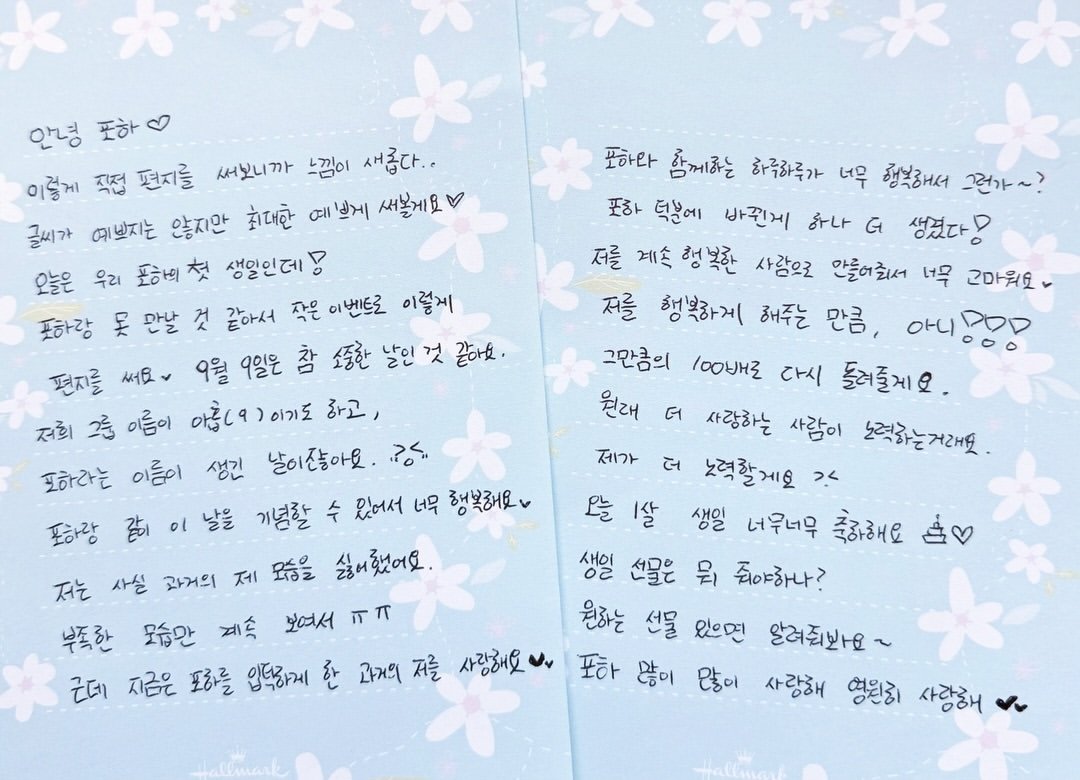 안녕 포하♡
이렇게 직접 편지를 써보니까 느낌이 새롭다..
글씨가 예쁘지는 않지만 최대한 예쁘게 써볼게요♡
오늘은 우리 포하의 첫 생일인데!
포하랑 못 만날 것 같아서 작은 이벤트로 이렇게
편지를 써요♥ 9월 9일은 참 소중한 날인 것 같아요.
저희 그룹 이름이 아홉(9)이기도 하고,
포하라는 이름이 생긴 날이잖아요.
포하랑 같이 이 날을 기념할 수 있어서 너무 행복해요♥
저는 사실 과거의 제 모습을 싫어했어요.
부족한 모습만 계속 보여서 ㅠㅠ
근데 지금은 포하를 입덕하게 한 과거의 저를 사랑해요♥♥
Hallmark
포하와 함께하는 하루하루가 너무 행복해서 그런가~?
포하 덕분에 바뀐게 하나 더 생겼다!
저를 계속 행복한 사람으로 만들어줘서 너무 고마워요♥
저를 행복하게 해주는 만큼, 아니!!!
그만큼의 100배로 다시 돌려줄게요.
원래 더 사랑하는 사람이 노력하는거래요.
제가 더 노력할게요 ><
오늘 1살 생일 너무너무 축하해요 ♡
생일 선물은 뭐 줘야하나?
원하는 선물 있으면 알려줘봐요~
포하 많이 많이 사랑해 영원히 사랑해 ♥♥
Hallmark